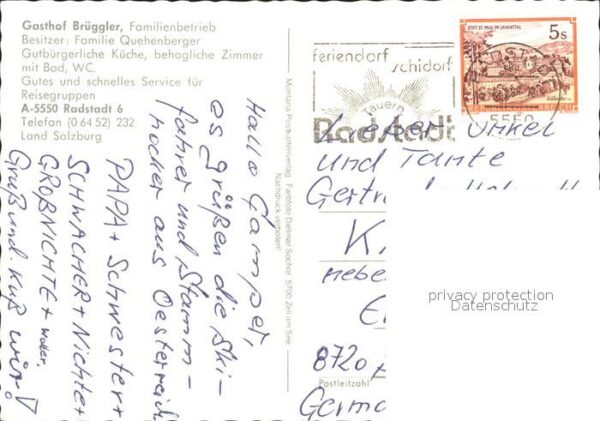 Gasthof Brüggler, Familienbetrieb
Besitzer: Familie Quehenberger
Gutbürgerliche Küche, behagliche Zimmer
mit Bad, WC.
Gutes und schnelles Service für
Reisegruppen
A-5550 Radstadt 6
Telefon (0 64 52) 232
Land Salzburg
Hallo
es grüßen die Ski-
fahrer und Stamm-
hocker aus Oesterreich
PAPA + Schwester +
SCHWACHER + Nichte +
GROßNICHTE +
Gruß und Kuß wir!
Montana Postkartenverlag Farbfoto Dietmar Sochor, 5700 Zell am See
Nachdruck verboten!
feriendorf
schidorf
Tauern
Radstadt
STIFT ST. PAUL IM LAVANTTAL
5s
5550
Lieber Onkel
und Tante
8720
Postleitzahl
Germa
privacy protection
Datenschutz